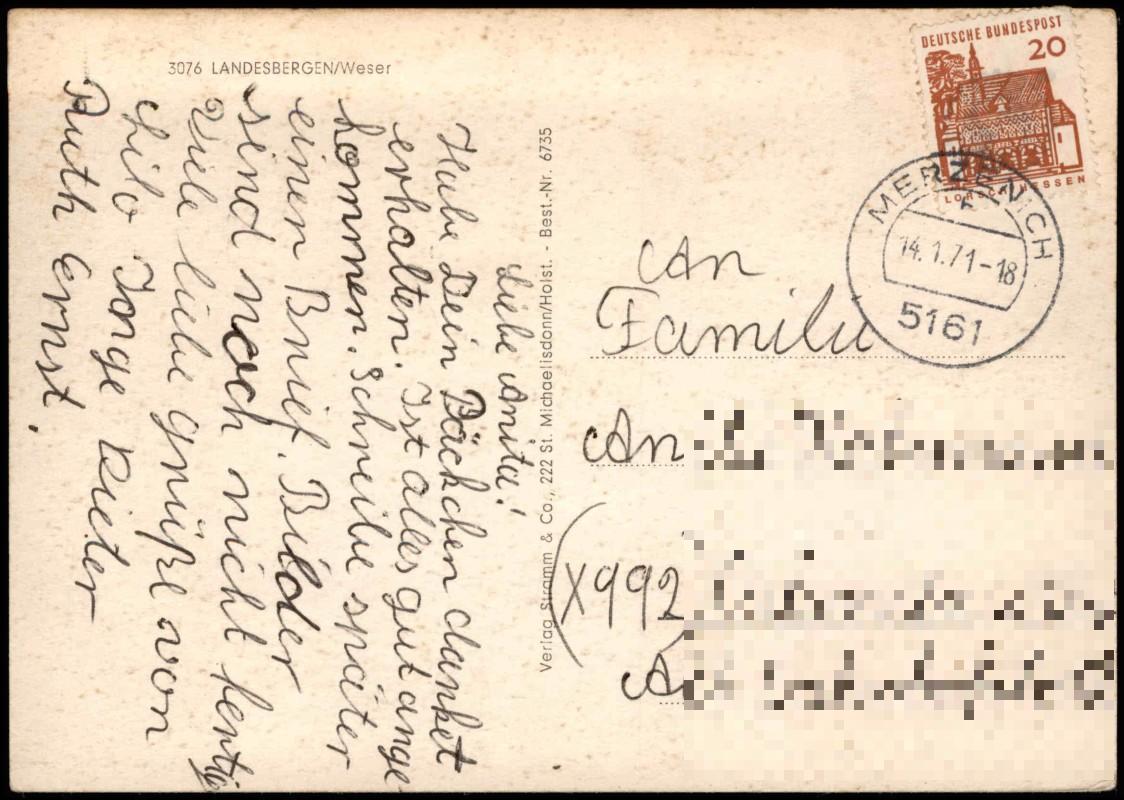 3076 LANDESBERGEN/Weser
Liebe Anita!
Habe Dein Päckchen danket
erhalten. Ist alles gut ange
kommen. Schreibe später
einen Brief. Bilder
sind noch nicht fertig
Viele liebe Grüße von
Ruth Ernst.
Verlag Stramm & Co., 222 St. Michaelisdonn/Holst. - Best.-Nr. 6735
DEUTSCHE BUNDESPOST
20
LORSCH HESSEN
MERZENICH
14.1.71-18
5161
An
Familie
An
X992